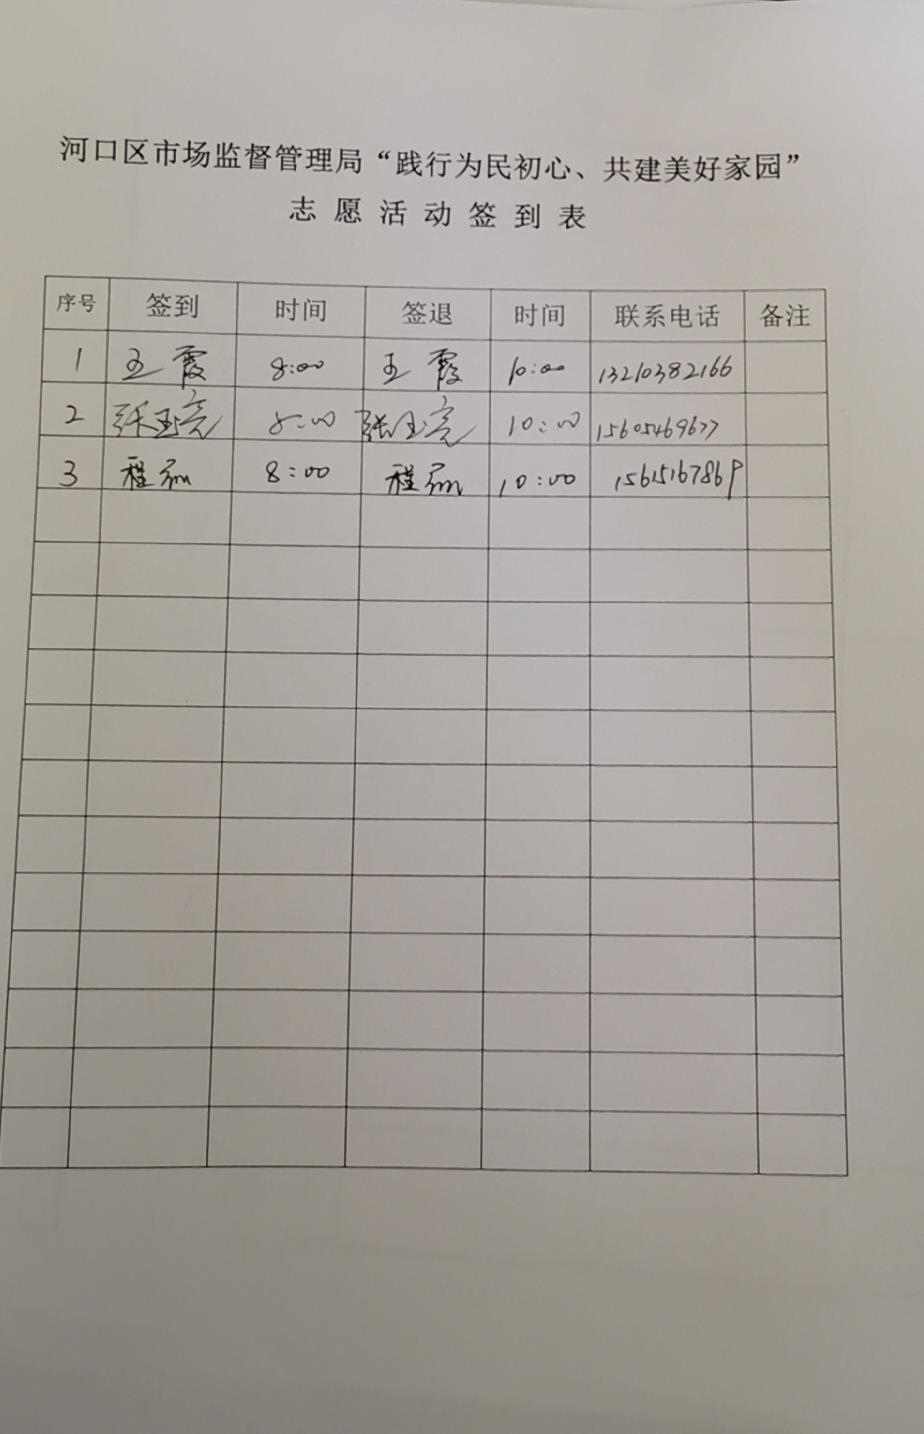 河口区市场监督管理局“践行为民初心、共建美好家园”
志愿活动签到表
序号 签到 时间 签退 时间 联系电话 备注
1 王霞 8:00 王霞 10:00 13210382166
2 张玉亮 8:00 张玉亮 10:00 15605469677
3 程 8:00 程 10:00 15615167869